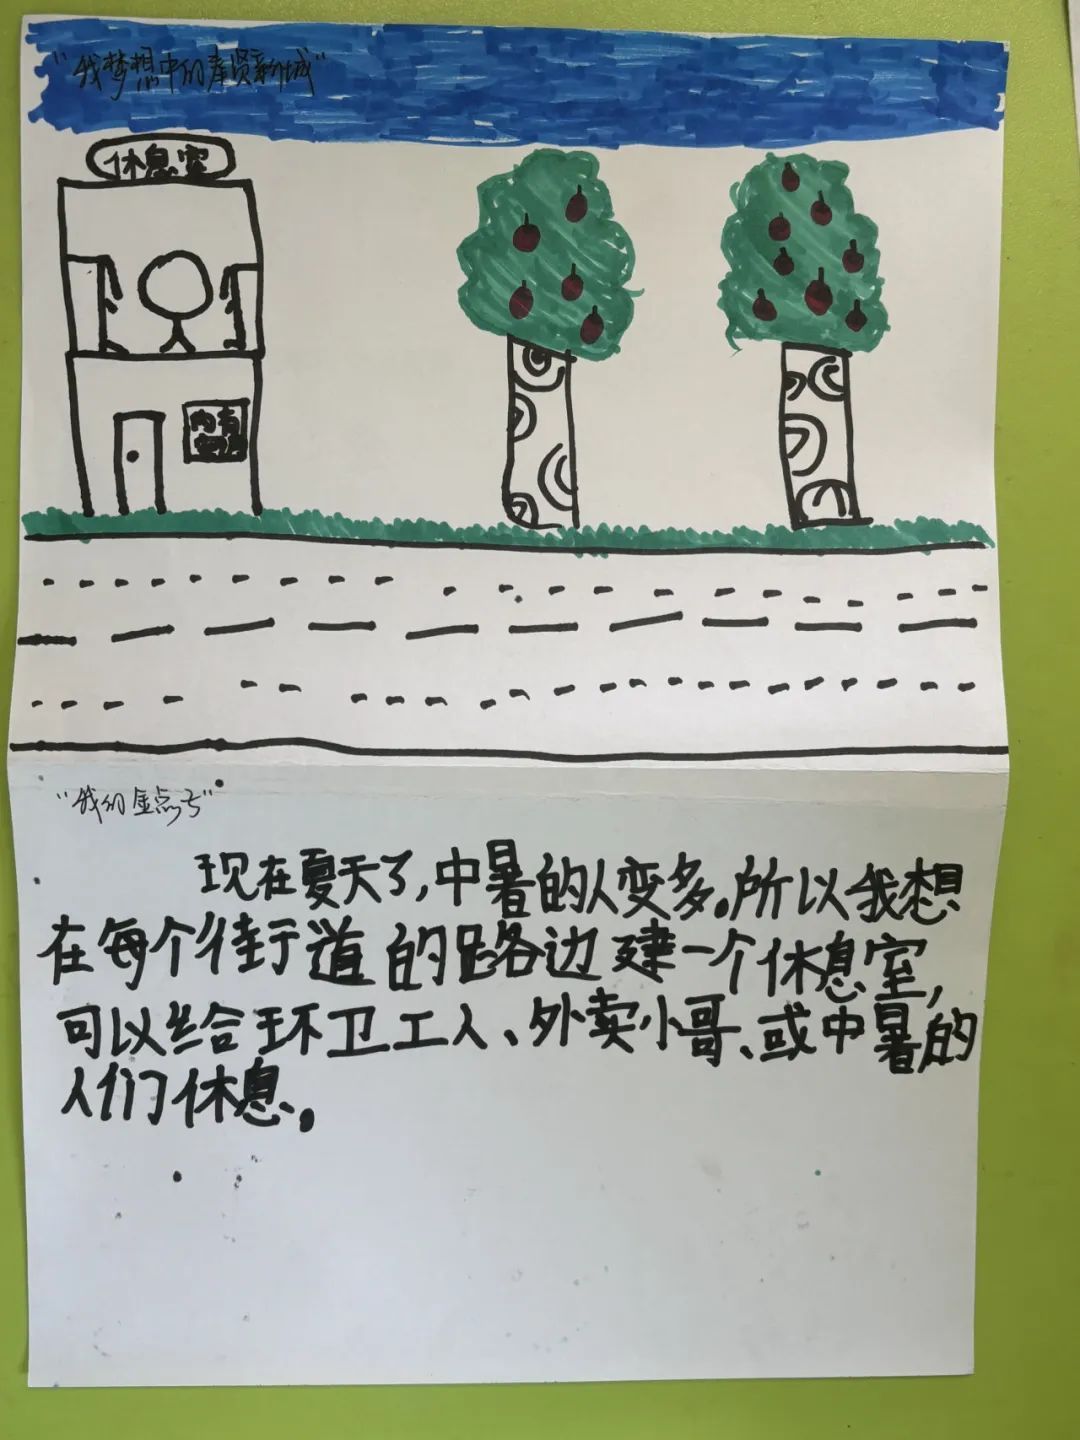 "我梦想中的奉贤新城"
休息室
内有
空调
"我的金点子"
现在夏天了,中暑的人变多。所以我想
在每个街道的路边建一个休息室,
可以给环卫工人、外卖小哥、或中暑的
人们休息。